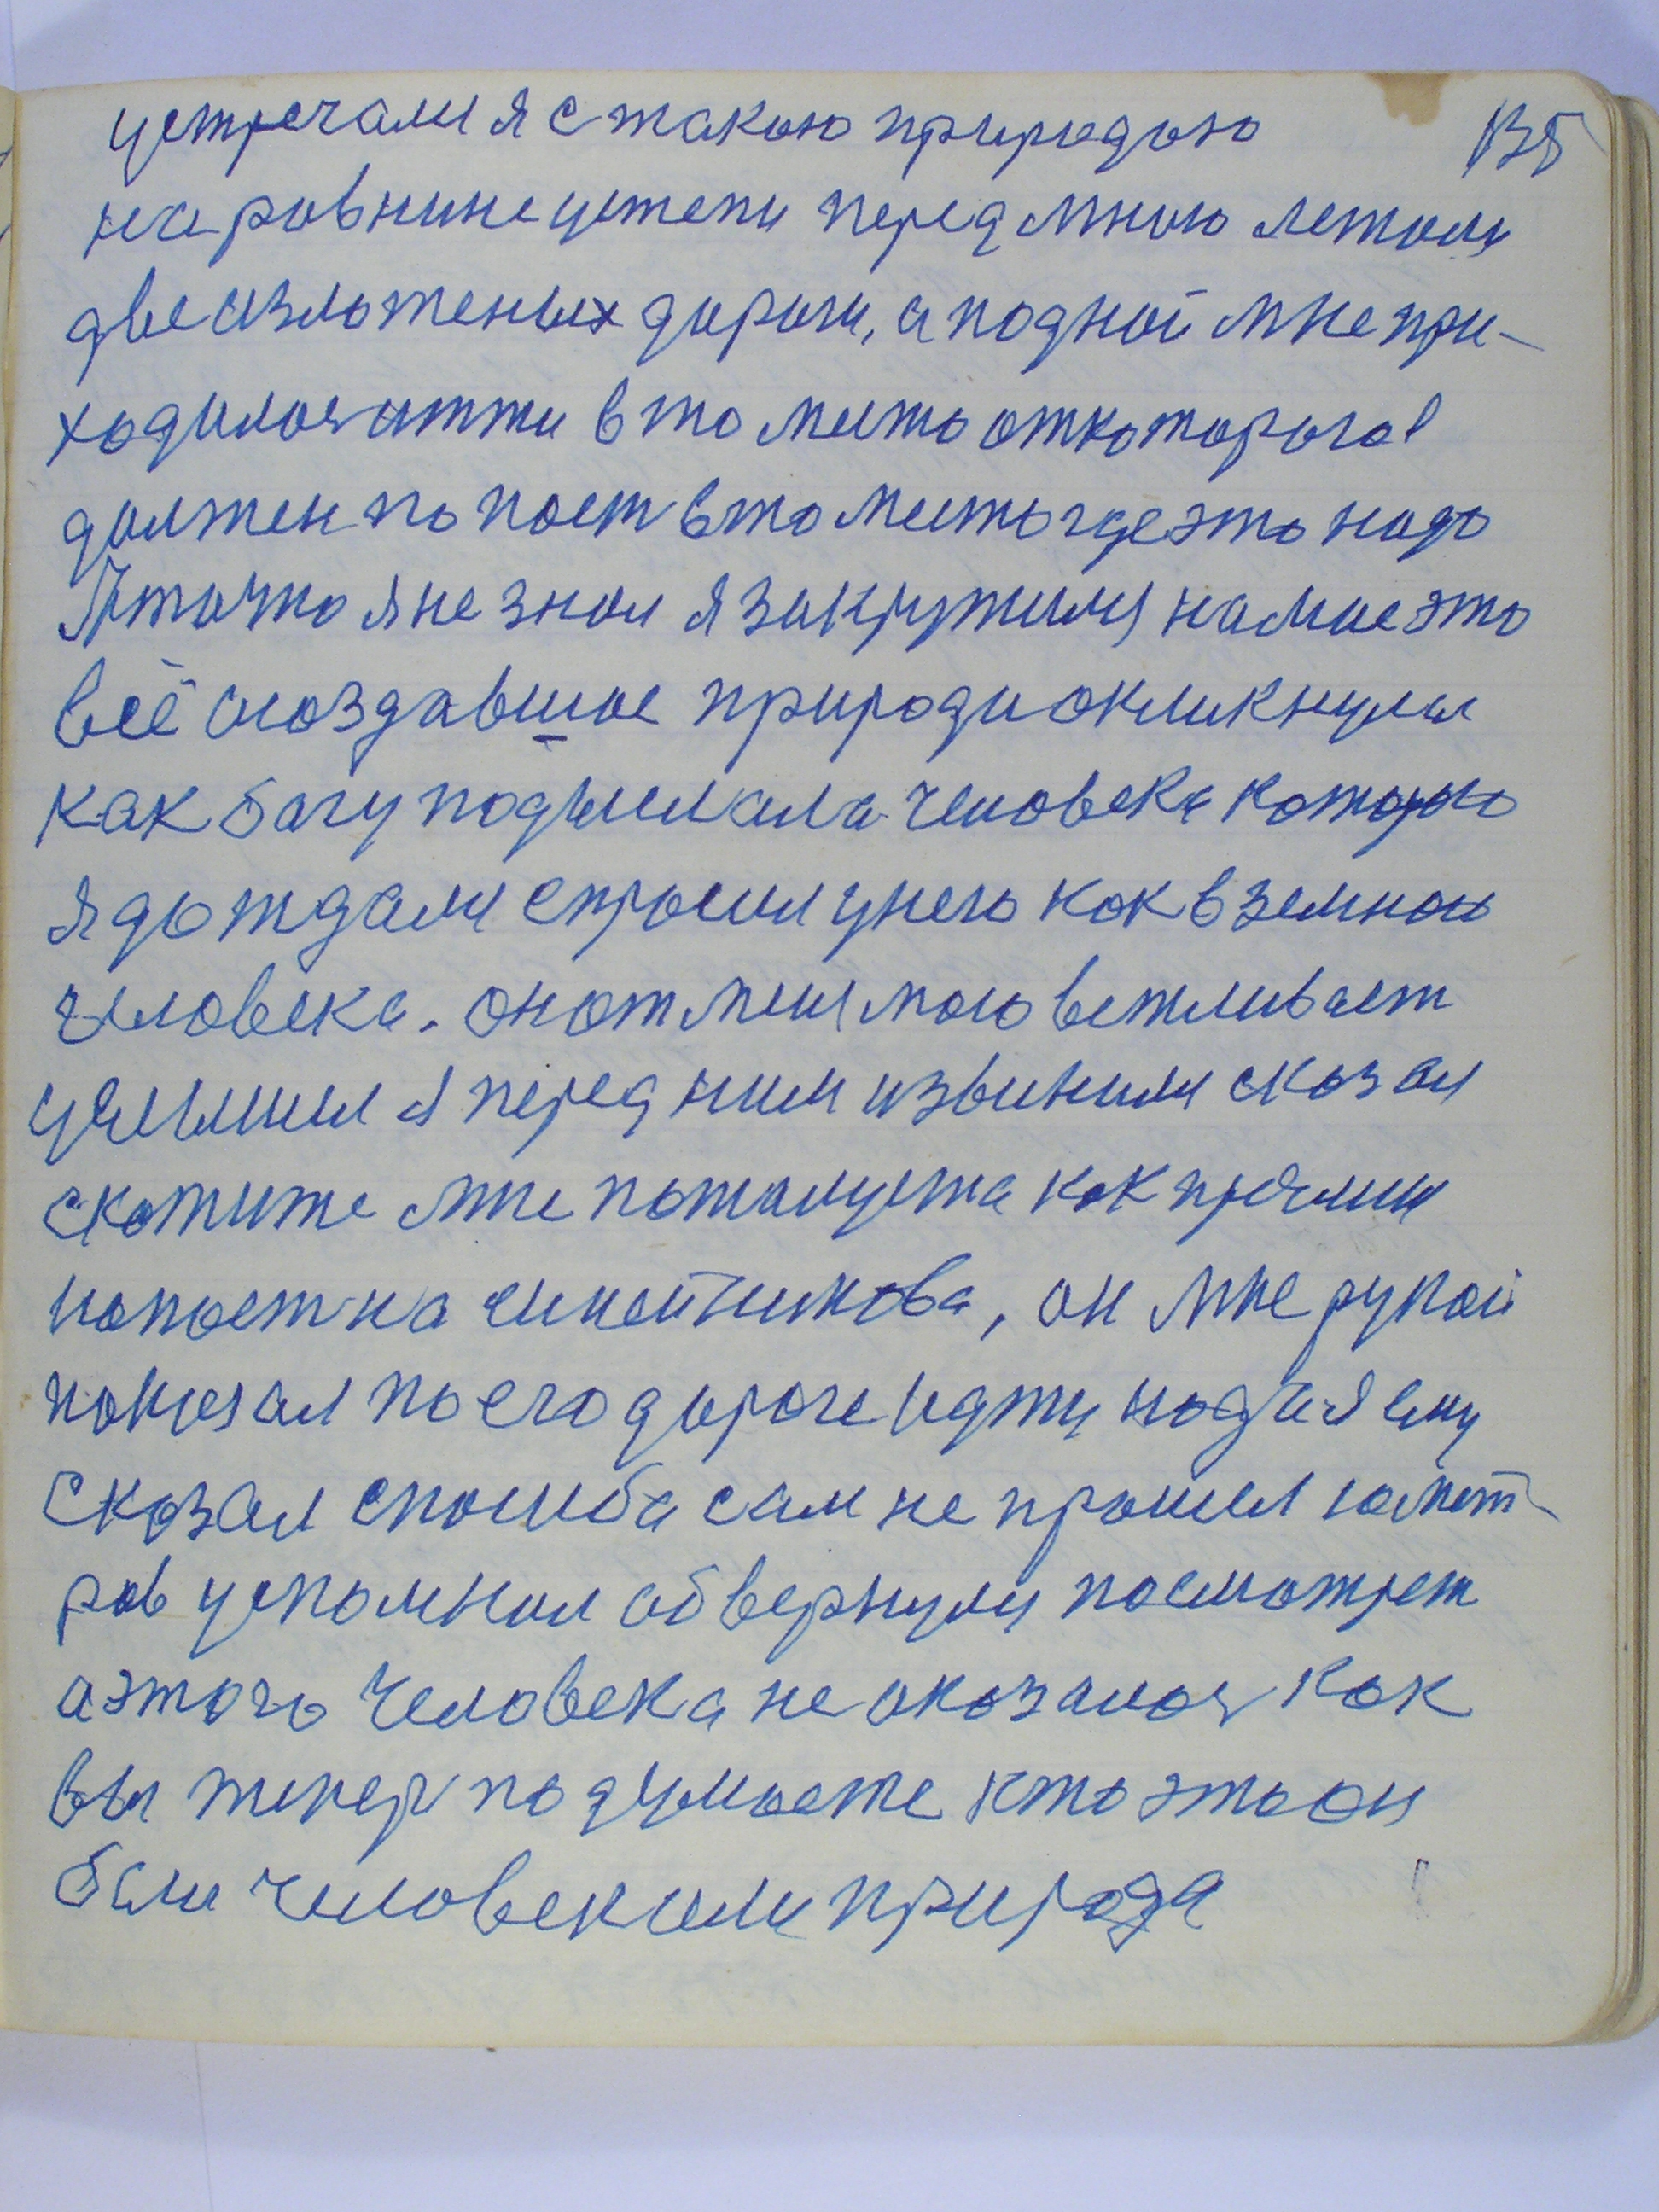 устречали я с такою природою 135
на равнине устепи перед мною лежали
две изложеных дороги, а по одной мне при-
ходилося итти в то место от которого
должен попаст в то место где это надо
А точно я не знал я закружился на мое это
всё создавшое природи окликнулся
как богу подымала человека которого
я дождаля спросил у него как в земного
человека. он от меня мою вежливаст
услышил я перед ним извинился сказал
скажите мне пожалуста как прямии
попаст на синейникова, он мне рукой
показал по его дороге идти надо я ему
сказал спосиба сам не прошел мет-
ров успомнил обвернулся посмотрет
а этого человека не оказалося как
вы тепер подумаете кто это он
был человек или природа